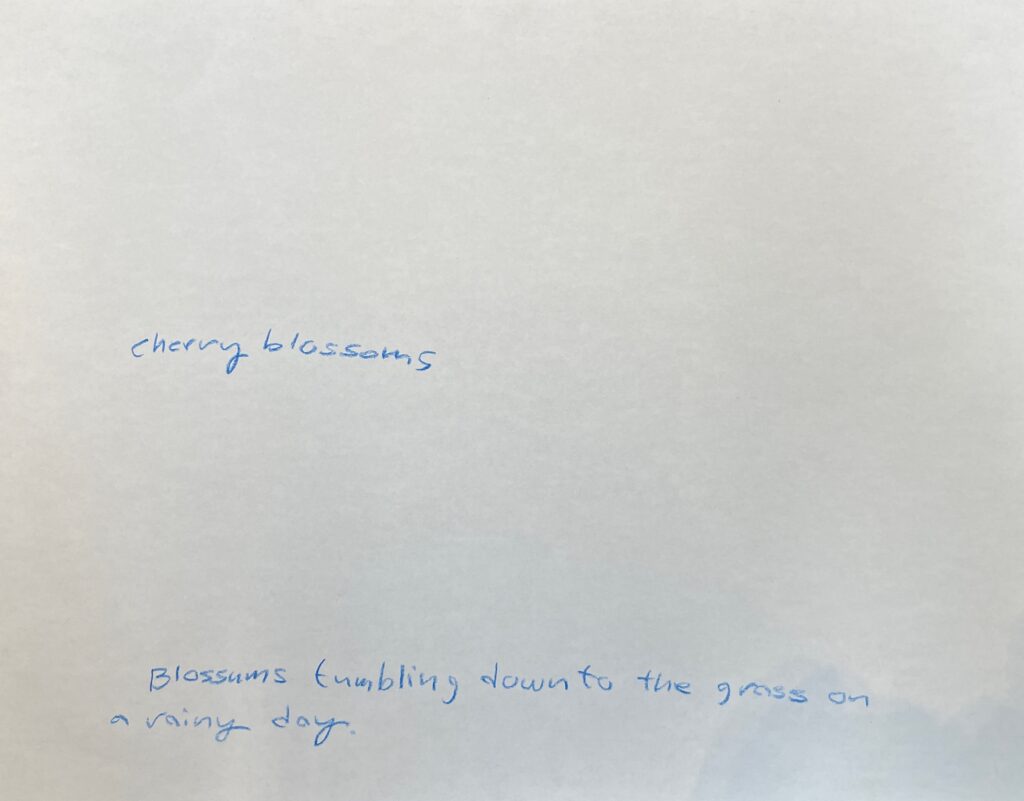 cherry blossoms
Blossums tumbling down to the grass on
a rainy day.